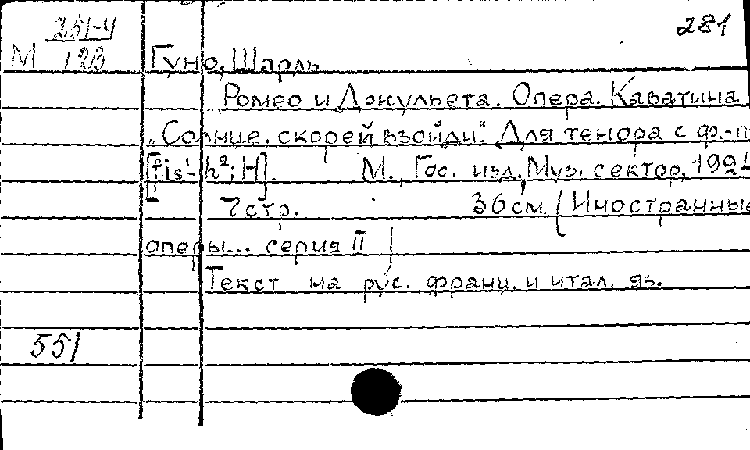 251-4
281
М 123
Гуно, Шарль
Ромео и Джульета. Опера. Каватина
„Солнце, скорей взойди". Для тенора с ф.-п
[fis¹-h²; H]. М., Гос. изд. Муз. сектор,
7 стр. 36 см (Иностранные
оперы... серия II)
Текст на рус. франц. и итал. яз.
551